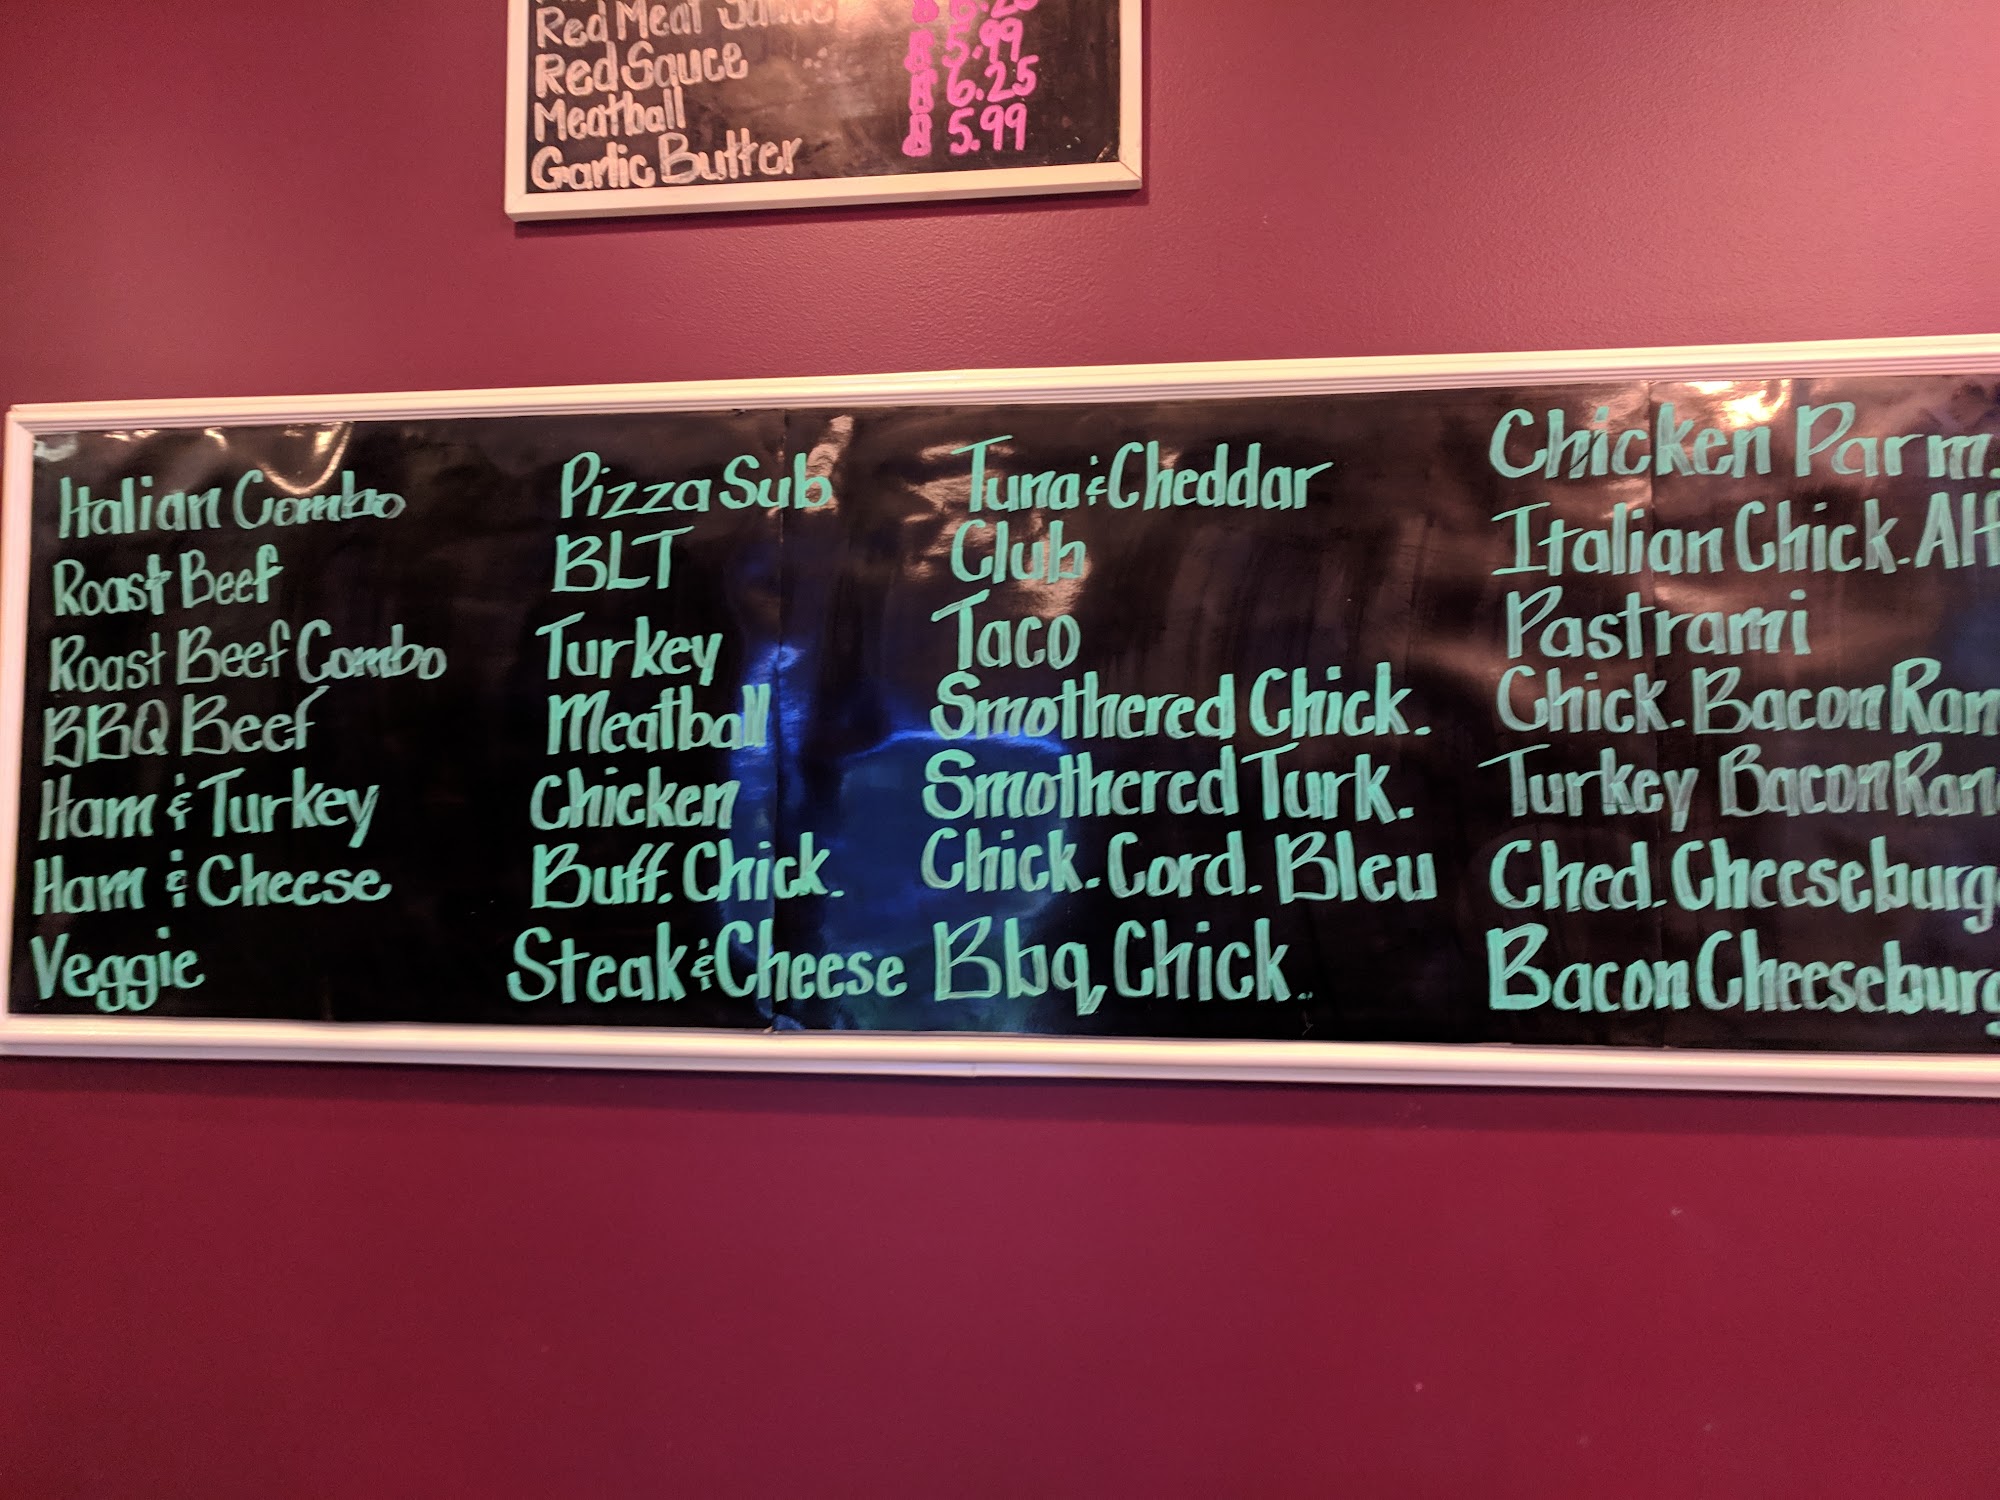 Red Meat
Red Sauce 5.99
Meatball 6.25
Garlic Butter 5.99
Italian Combo
Roast Beef
Roast Beef Combo
BBQ Beef
Ham & Turkey
Ham & Cheese
Veggie
Pizza Sub
BLT
Turkey
Meatball
Chicken
Buff. Chick.
Steak & Cheese
Tuna & Cheddar
Club
Taco
Smothered Chick.
Smothered Turk.
Chick. Cord. Bleu
Bbq Chick.
Chicken Parm.
Italian Chick. Alf
Pastrami
Chick. Bacon Ran
Turkey Bacon Ran
Ched. Cheeseburg
Bacon Cheeseburg